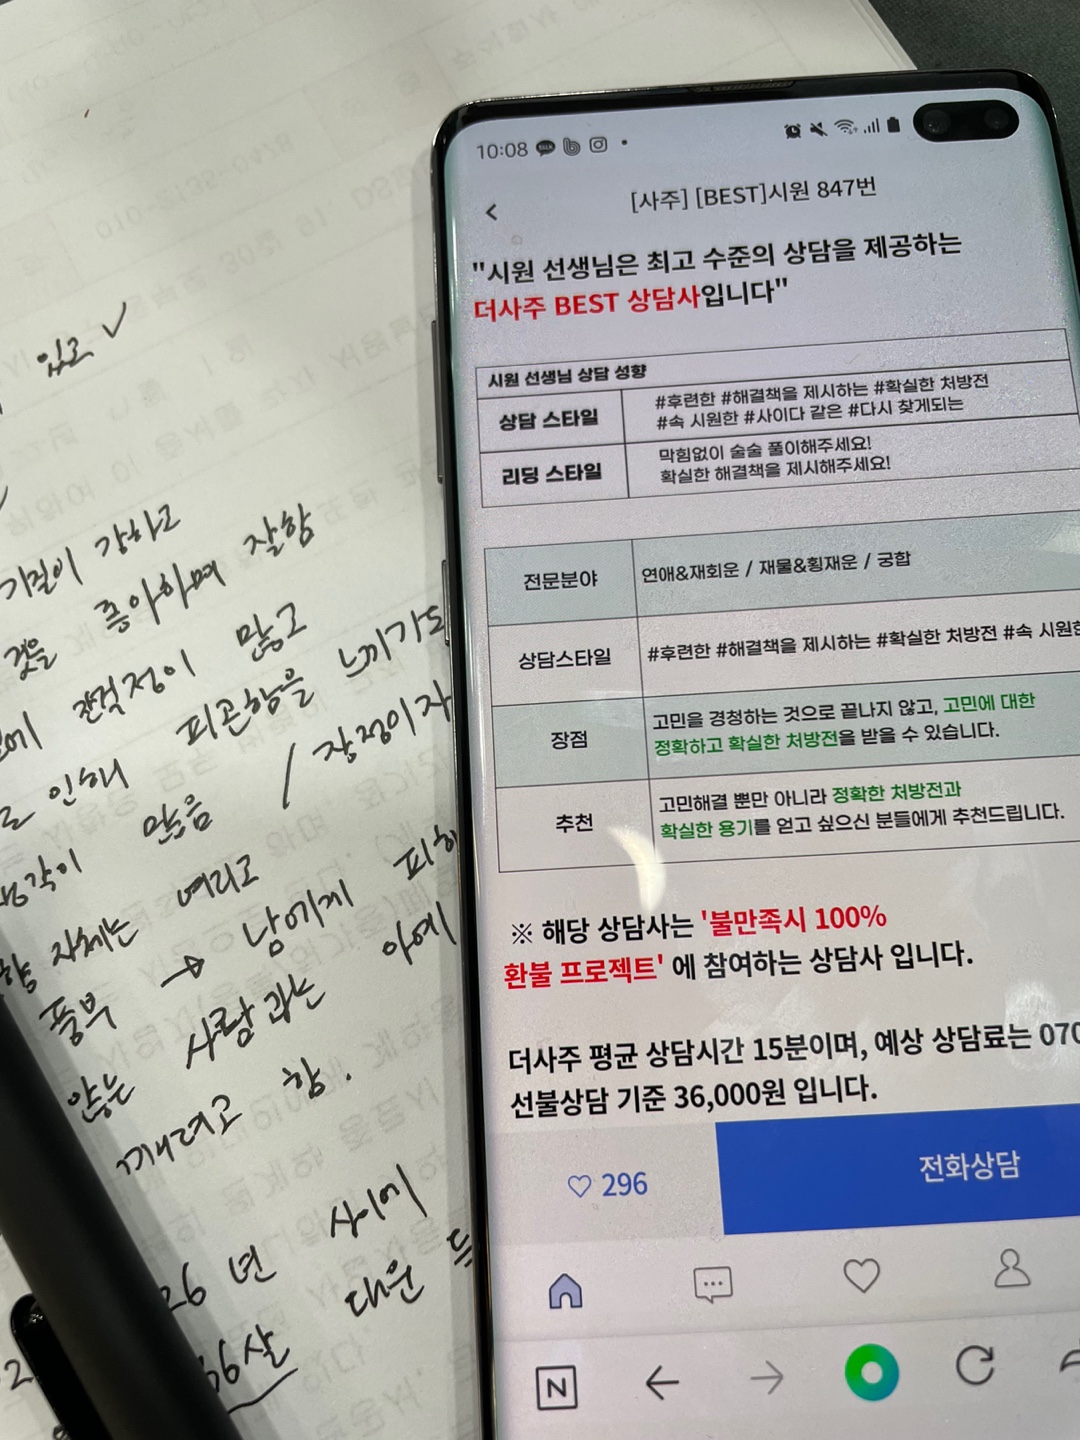 있고 ✓
기질이 강하고
것을 좋아하며 잘함
관걱정이 많고
피곤함을 느끼기도
로 인해 / 장정이 자
생각이 많음
자체는 여리고
풍부 → 남에게 피해
않는 사람과는 아예
깨려고 함.
26년 사이에
66살 대운 
10:08
[사주] [BEST]시원 847번
"시원 선생님은 최고 수준의 상담을 제공하는
더사주 BEST 상담사입니다"
시원 선생님 상담 성향
상담 스타일 #후련한 #해결책을 제시하는 #확실한 처방전
#속 시원한 #사이다 같은 #다시 찾게되는
리딩 스타일 막힘없이 술술 풀이해주세요!
확실한 해결책을 제시해주세요!
전문분야 연애&재회운 / 재물&횡재운 / 궁합
상담스타일 #후련한 #해결책을 제시하는 #확실한 처방전 #속 시원한
장점 고민을 경청하는 것으로 끝나지 않고, 고민에 대한
정확하고 확실한 처방전을 받을 수 있습니다.
추천 고민해결 뿐만 아니라 정확한 처방전과
확실한 용기를 얻고 싶으신 분들에게 추천드립니다.
※ 해당 상담사는 '불만족시 100%
환불 프로젝트' 에 참여하는 상담사 입니다.
더사주 평균 상담시간 15분이며, 예상 상담료는 070
선불상담 기준 36,000원 입니다.
♡ 296 전화상담
N